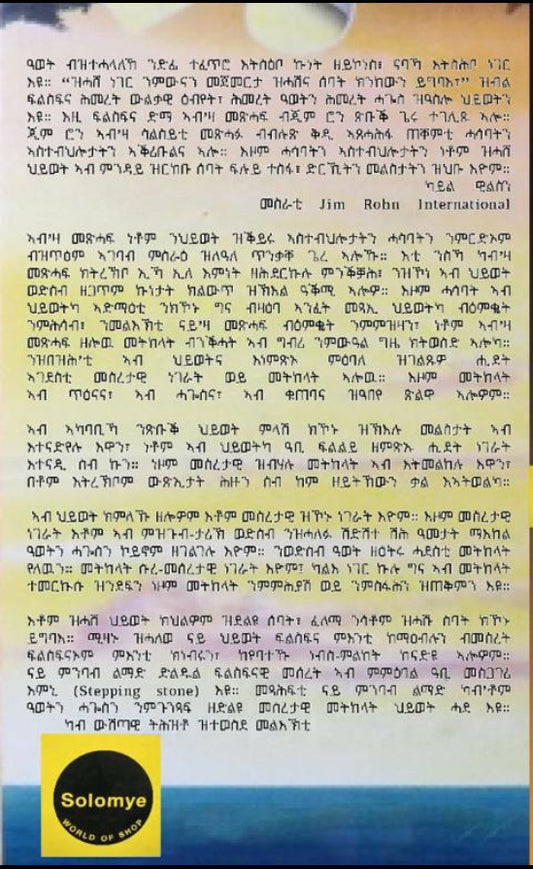 ዓወት ብዝተሓላለኸ ንድፊ ተፈጥሮ እትስዕቦ ኩነት ዘይኮነስ፣ ናባኻ እትስሕቦ ነገር
እዩ። “ዝሓሸ ነገር ንምውናን መጀመርታ ዝሓሸና ሰባት ክንከውን ይግባእ፣” ዝብል
ፍልስፍና ሕመረት ውልቃዊ ዕብየት፣ ሕመረት ዓወትን ሕመረት ሓጐስ ዝዓስሎ ህይወትን
እዩ። እዚ ፍልስፍና ድማ ኣብ'ዛ መጽሓፍ ብጂም ሮን ጽቡቕ ጌሩ ተገሊጹ ኣሎ።
ጂም ሮን ኣብ'ዛ ሳልሰይቲ መጽሓፉ ብብሉጽ ቅዲ ኣጸሓሕፋ ጠቐምቲ ሓሳባትን
ኣስተብህሎታትን ኣቕሪቡልና ኣሎ። እዞም ሓሳባትን ኣስተብህሎታትን ነቶም ዝሓሸ
ህይወት ኣብ ምንዳይ ዝርከቡ ሰባት ፍሉይ ተስፋ፣ ድርኺትን መልስታትን ዝህቡ እዮም።
ካይል ዊልሰን
መስራቲ Jim Rohn International
ኣብ'ዛ መጽሓፍ ነቶም ንህይወት ዝቕይሩ ኣስተብህሎታትን ሓሳባትን ንምርድኦም
ብዝጥዕም ኣገባብ ምስራዕ ዝለዓለ ጥንቃቐ ጌረ ኣሎኹ። እቲ ንስኻ ካብ'ዛ
መጽሓፍ ክትረኽቦ ኢኻ ኢለ እምነት ዘሕደርኩሉ ምንቕቓሕ፣ ንዝኾነ ኣብ ህይወት
ወድሰብ ዘጋጥም ኩነታት ክልውጥ ዝኽእል ዓቕሚ ኣሎዎ። እዞም ሓሳባት ኣብ
ህይወትካ ኣድማዕቲ ንክኾኑ ግና ብዛዕባ ኣንፈት መጻኢ ህይወትካ ብዕምቈት
ንምሕሳብ፣ ንመልእኽቲ ናይ'ዛ መጽሓፍ ብዕምቈት ንምምዝዛን፣ ነቶም ኣብ'ዛ
መጽሓፍ ዘሎዉ መትከላት ብንቕሓት ኣብ ግብሪ ንምውዓል ግዜ ክትወስድ ኣሎካ።
ንዝበዝሕ'ቲ ኣብ ህይወትና እነምጽኦ ምዕባለ ዝገልጸዎ ሒደት
ኣገደስቲ መሰረታዊ ነገራት ወይ መትከላት ኣሎዉ። እዞም መትከላት
ኣብ ጥዕናና፣ ኣብ ሓጐስና፣ ኣብ ቁጠባና ዝዓበየ ጽልዋ ኣሎዎም።
ኣብ ኣካባቢኻ ንጽቡቕ ህይወት ምላሽ ክኾኑ ዝኽእሉ መልስታት ኣብ
እተናድየሉ እዋን፣ ነቶም ኣብ ህይወትካ ዓቢ ፍልልይ ዘምጽኡ ሒደት ነገራት
እተናዲ ሰብ ኩን። ነዞም መሰረታዊ ዝብሃሉ መትከላት ኣብ እትመልከሉ እዋን፣
በቶም እትረኽቦም ውጽኢታት ሕዙን ሰብ ከም ዘይትኸውን ቃል እኣትወልካ።
ኣብ ህይወት ክምለኹ ዘሎዎም እቶም መሰረታዊ ዝኾኑ ነገራት እዮም። እዞም መሰረታዊ
ነገራት እቶም ኣብ ምዝጉብ-ታሪኽ ወድሰብ ንዝሓለፉ ሽድሽተ ሽሕ ዓመታት ማእከል
ዓወትን ሓጐስን ኮይኖም ዘገልገሉ እዮም። ንወድሰብ ዓወት ዘዕትሩ ሓደስቲ መትከላት
የለዉን። መትከላት ሱረ-መሰረታዊ ነገራት እዮም፣ ካልእ ነገር ኩሉ ግና ኣብ መትከላት
ተመርኲሱ ዝንደፍን ነዞም መትከላት ንምምሕያሽ ወይ ንምስፋሕን ዝጠቅምን እዩ።
እቶም ዝሓሸ ህይወት ክህልዎም ዝደልዩ ሰባት፣ ፈለማ ንሳቶም ዝሓሹ ሰባት ክኾኑ
ይግባእ። ሚዛኑ ዝሓለወ ናይ ህይወት ፍልስፍና ምእንቲ ከማዕብሉን ብመሰረት
ፍልስፍናኦም ምእንቲ ክነብሩን፣ ከየባተኹ ነብሰ-ምልከት ከናድዩ ኣሎዎም።
ናይ ምንባብ ልማድ ድልዱል ፍልስፍናዊ መሰረት ኣብ ምምዕባል ዓቢ መሰጋገሪ
እምኒ (Stepping stone) እዩ። መጻሕፍቲ ናይ ምንባብ ልማድ ካብ'ቶም
ዓወትን ሓጐስን ንምጉንጻፍ ዘድልዩ መሰረታዊ መትከላት ህይወት ሓደ እዩ።
ካብ ውሽጣዊ ትሕዝቶ ዝተወስደ መልእኽቲ
Solomye
WORLD OF SHOP